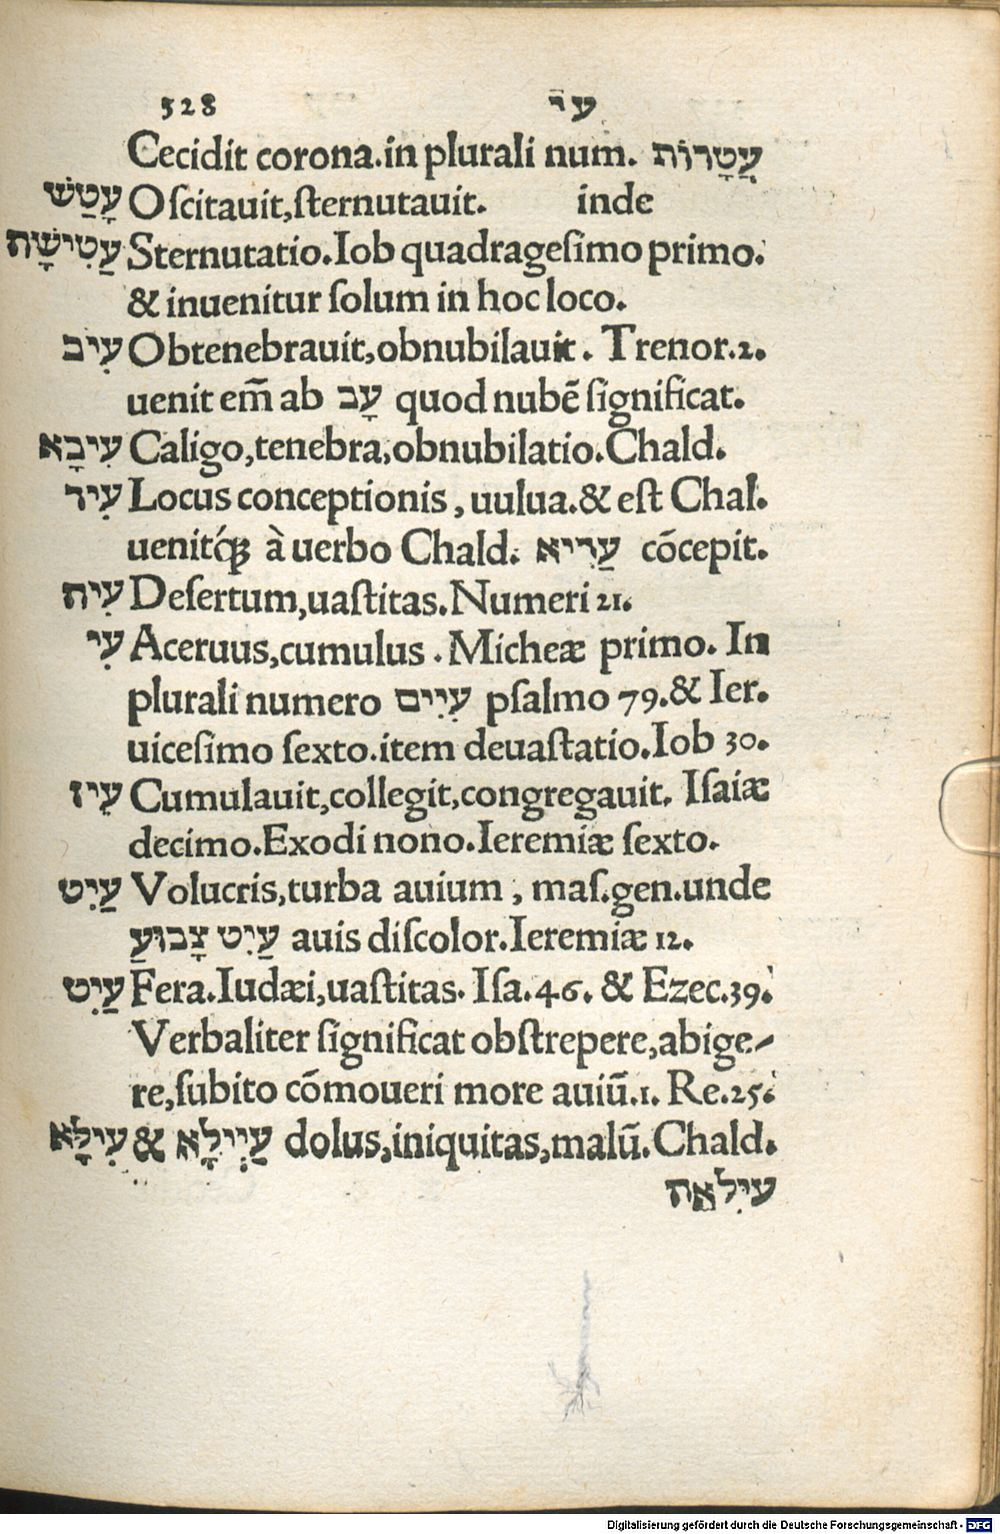 528 עי
Cecidit corona.in plurali num. עֲטָרוֹת
עָטַשׁ Oſcitauit,ſternutauit. inde
עַטִישָׁה Sternutatio.Iob quadrageſimo primo.
& inuenitur ſolum in hoc loco.
עִיב Obtenebrauit,obnubilauit. Trenor.2.
uenit em̃ ab עָב quod nubẽ ſignificat.
עִיבָא Caligo,tenebra,obnubilatio.Chald.
עִיר Locus conceptionis, uulua.& eſt Chal.
uenitq́ꝫ à uerbo Chald. עַרִיא cõcepit.
עִיח Deſertum,uaſtitas.Numeri 21.
עִי Aceruus,cumulus .Micheæ primo. In
plurali numero עִיִים pſalmo 79.& Ier.
uiceſimo ſexto.item deuaſtatio.Iob 30.
עִיז Cumulauit,collegit,congregauit. Iſaiæ
decimo.Exodi nono.Ieremiæ ſexto.
עַיִט Volucris,turba auium, maſ.gen.unde
עַיִט צָבוּעַ auis diſcolor.Ieremiæ 12.
עַיִט Fera.Iudæi,uaſtitas. Iſa.46. & Ezec.39.
Verbaliter ſignificat obſtrepere,abige-
re,ſubito cõmoueri more auiũ.1. Re.25.
עִילָא & עַיְילָא dolus,iniquitas,malũ.Chald.
עִילאה